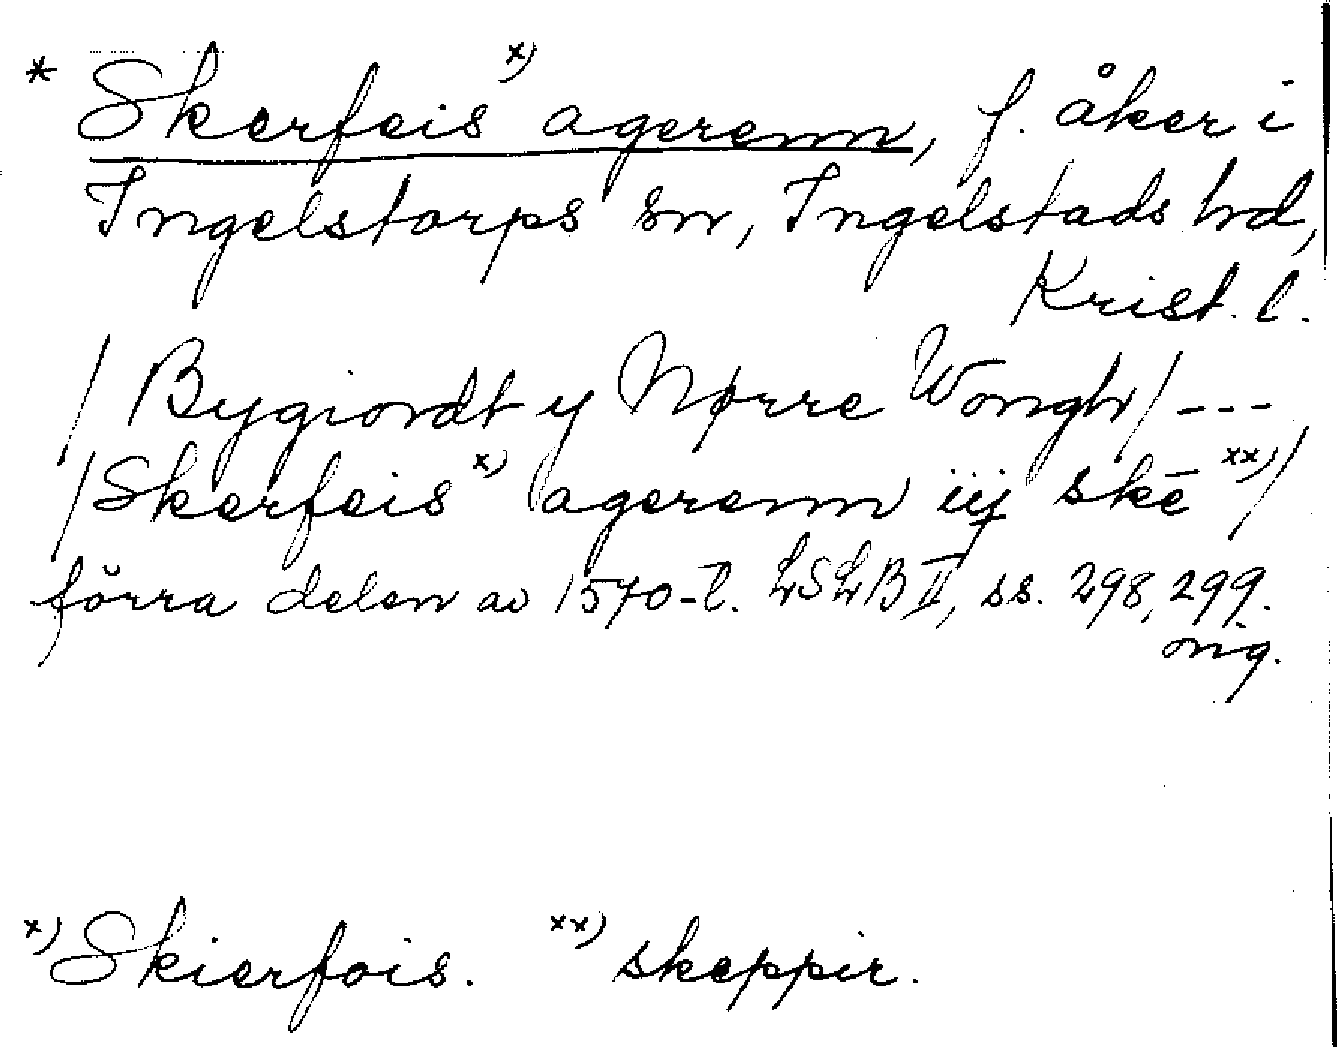 * Skerfeis x) agerenn, f. åker i
Ingelstorps sn, Ingelstads hd,
Krist. l.
/ Bygiordt y Nørre Wongh / ---
/ Skerfeis x) agerenn iij skē xx) /
förra delen av 1570-t. LSLB II, ss. 298, 299.
ong.
x) Skierfois. xx) skeppir.